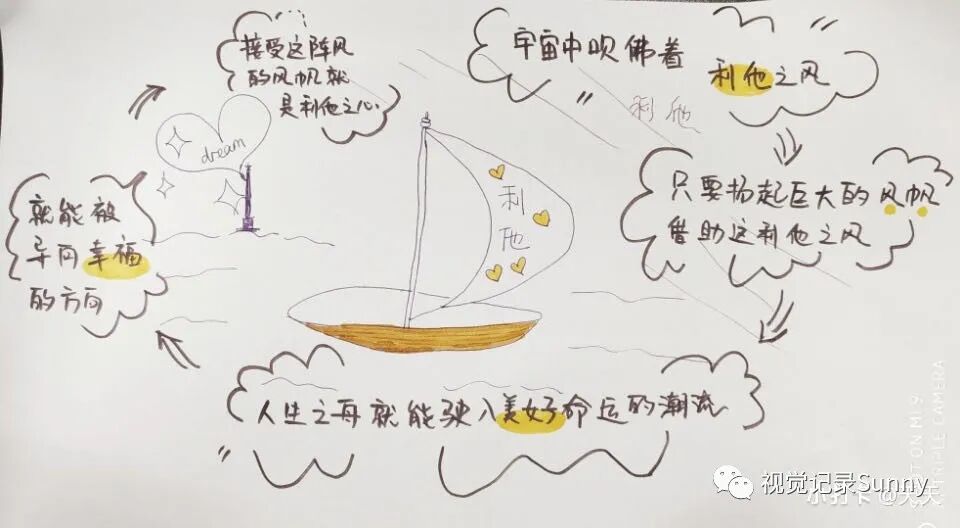 宇宙中吹佛着
利他之风
利他
只要扬起巨大的风帆
借助这利他之风
人生之舟就能驶入美好命运的潮流
就能被
导向幸福
的方向
接受这阵风
的风帆就
是利他之心
dream
利
他
视觉记录Sunny
小打卡
SHOT ON MI 9
AI TRIPLE CAMERA